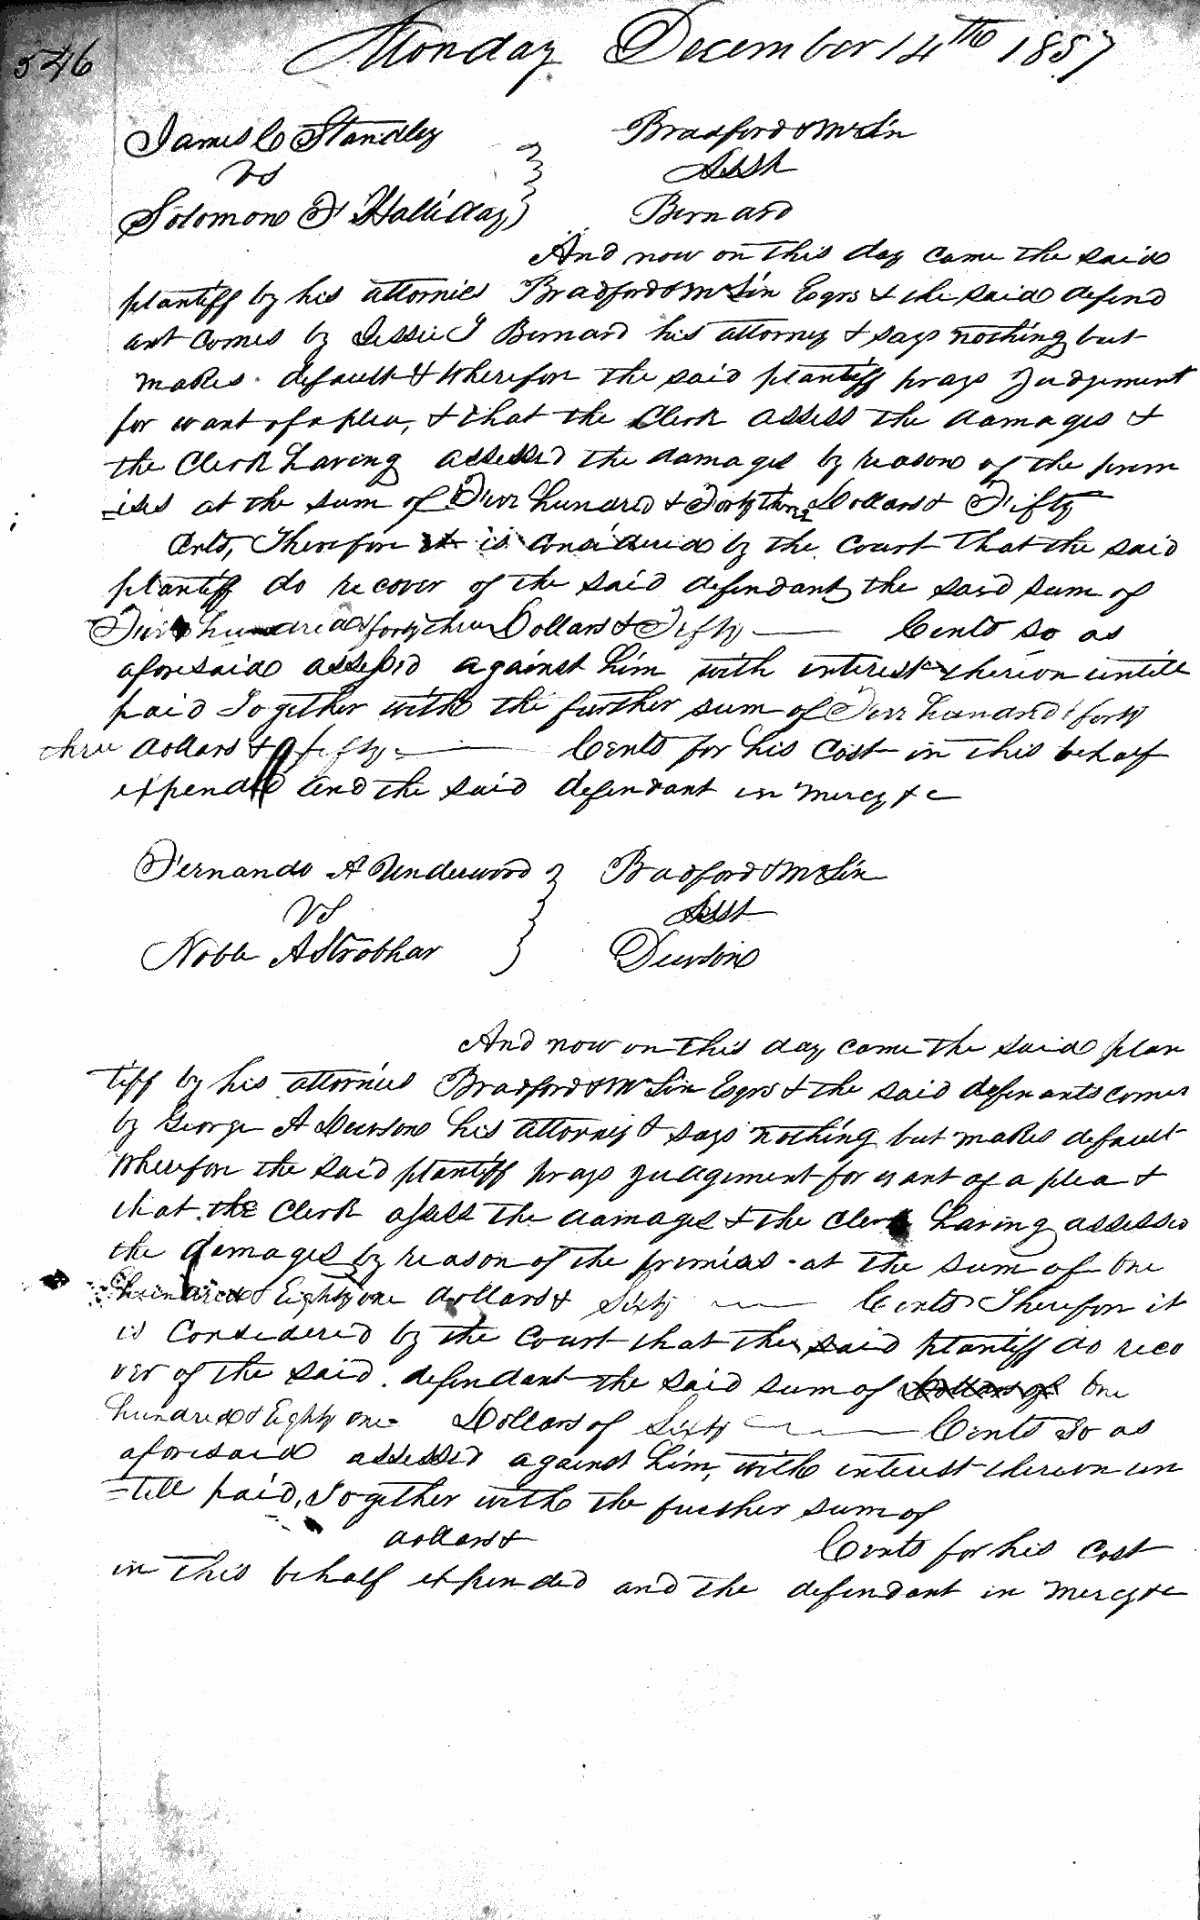 546 Monday December 14th 1857
James C Standley Bradford & McLin
vs Asst
Solomon F Halliday Bernard
And now on this day came the said
plantiff by his attornies Bradford & McLin Esqrs & the said defend
ant comes by Jessie T Bernard his attorney & says nothing but
makes default & Wherefore the said plantiff prays Judgement
for want of a plea, & that the Clerk assess the damages &
the Clerk having assessed the damages by reason of the prem
=ises at the sum of hundred & Forty three Dollars & Fifty
Cents, Therefore it is considered by the Court that the said
plantiff do recover of the said defendant the said sum of
hundred & forty three Dollars & Fifty Cents so as
aforesaid assessed against him with interest thereon untill
paid Together with the further sum of hundred & forty
three dollars & fifty Cents for his cost in this behalf
expended and the said defendant in mercy &c
Fernando A Underwood Bradford & McLin
vs Asst
Noble A Strobhar
And now on this day came the said plan
tiff by his attornies Bradford & McLin Esqrs & the said defenants comes
by George A his attorney & says nothing but makes default
Wherefore the said plantiff prays Judgement for want of a plea &
that the Clerk assess the damages & the Clerk having assessed
the damages by reason of the premises at the sum of One
hundred & Eighty one dollars & Sixty Cents Therefore it
is considered by the Court that the said plantiff do reco
ver of the said defendant the said sum of Dollars of One
hundred & Eighty one Dollars of Sixty Cents so as
aforesaid assessed against him, with interest thereon un
=till paid, Together with the further sum of
dollars & Cents for his cost
in this behalf expended and the defendant in mercy &c